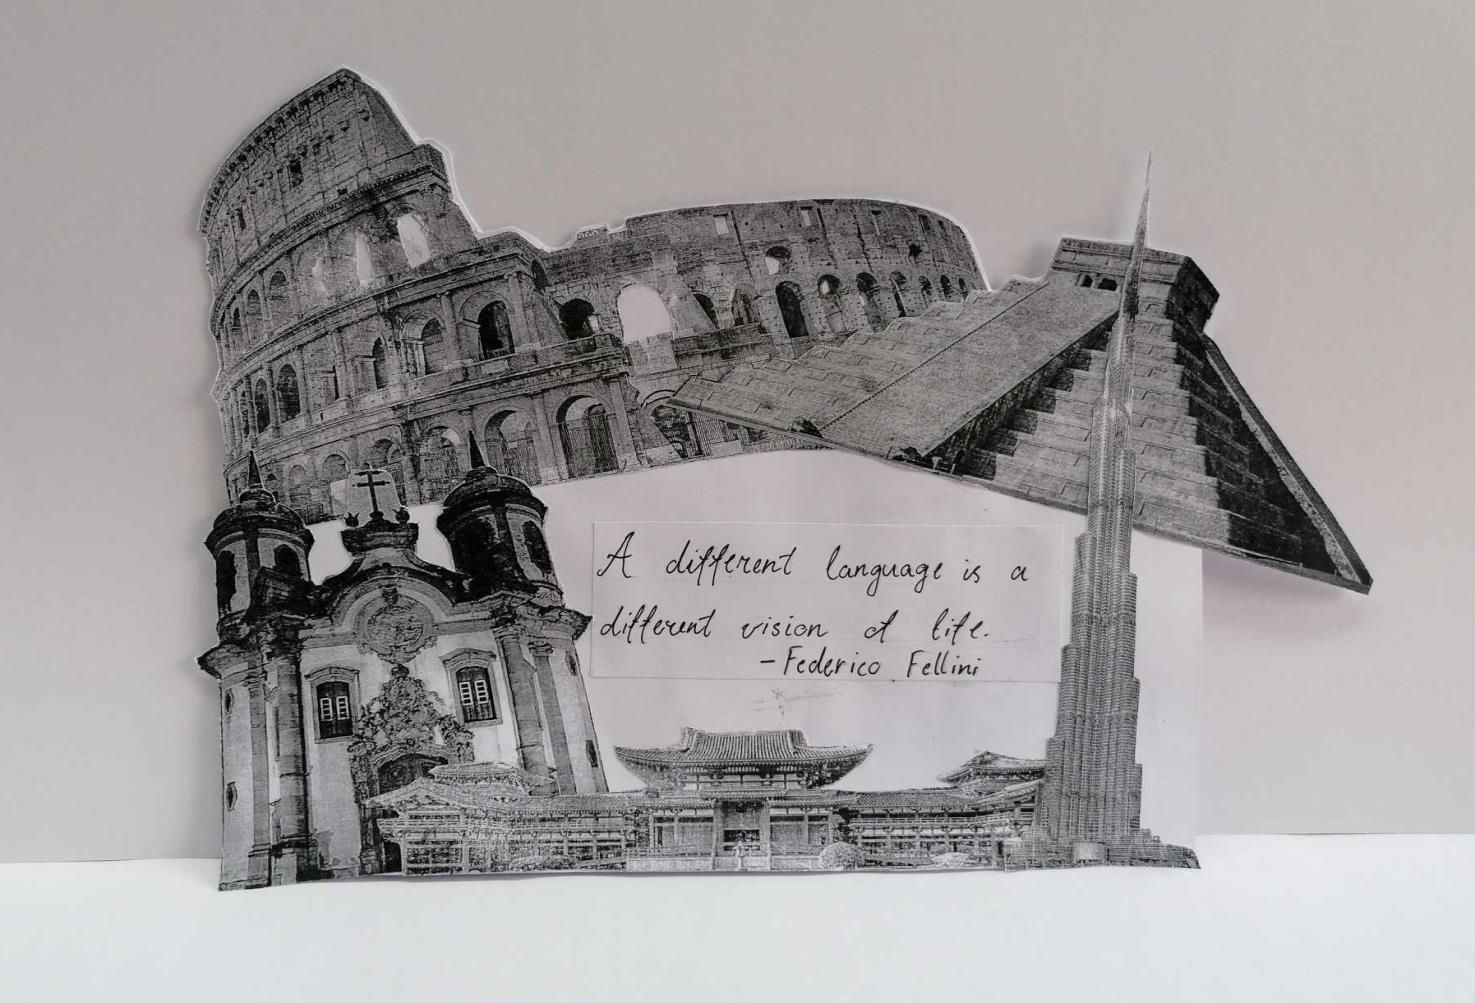 A different language is a
different vision of life.
- Federico Fellini